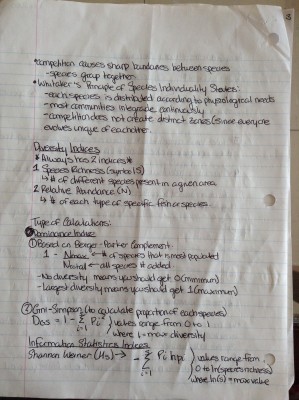 *Competition causes sharp boundaries between species
-species group together
*Whitaker's Principle of Species Individuality States:
-each species is distributed according to physiological needs
-most communities integrade continuously
-competition does not create distinct zones (since everyone
evolves unique of eachother.
Diversity Indices
*Always has 2 indices*
1 Species Richness (symbol S)
↳ # of different species present in a given area
2 Relative Abundance (N)
↳ # of each type of specific fish or species
Type of Calculations:
Dominance Index
① Based on Berger-Parker Complement:
1 - Nmax ← # of species that is most populated
Ntotal ← all species # added
-No diversity means you should get 0 (minimum)
-Largest diversity means you should get 1 (maximum)
② Gini-Simpson (to calculate proportion of each species)
DGS = 1 - Σ Pi² } values range from 0 to 1
i=1 where 1 = max diversity
Information Statistics Indices
Shannon Weiner (Hs) → - Σ Pi lnpi } values range from
i=1 0 to ln(species richness)
where ln(s) = max value